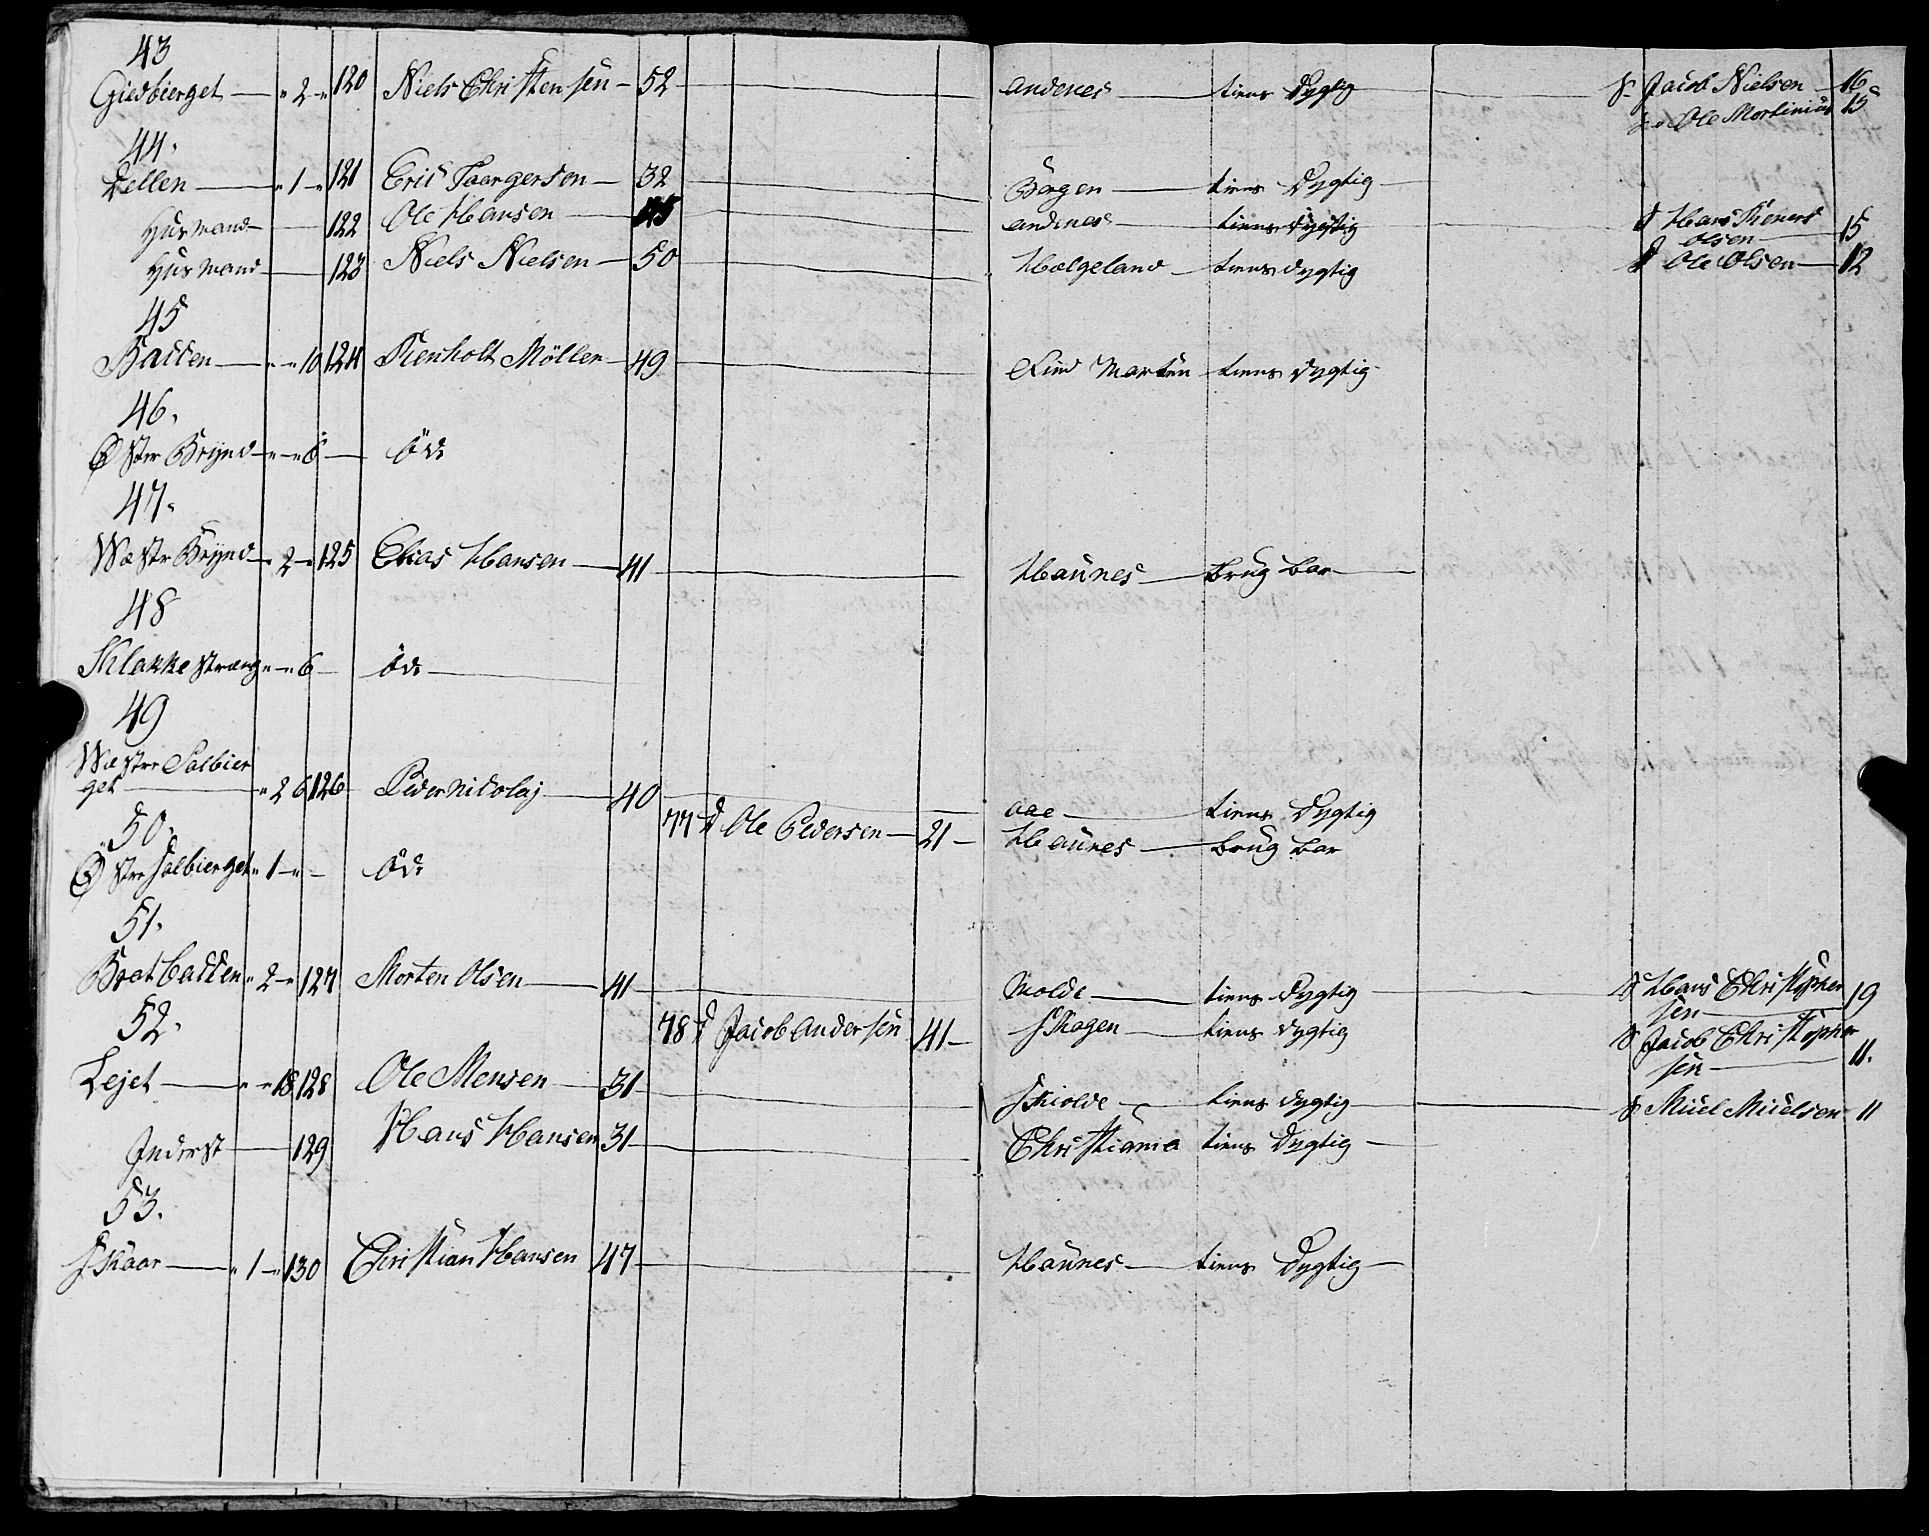 43
Giedbierget — " 2 " 120 Niels Christensen — 52 — andenes — tiens Dygtig — S. Jacob Nielsen — 16
Ole Mortinius 15
44.
Dellen — " 1 " 121 Eric Taargersen — 32 — Børgen — tiens Dygtig —
Husmand — 122 Ole Hansen — 45 — andenes — tiens dygtig — S Hans Reners
Olsen — 15
Husmand — 123 Niels Nielsen — 50 — Halgeland — tiens dygtig S Ole Olsen — 12
45
Badden — " — " 10 124 Renholt Möller — 49 — Lind Marken — tiens Dygtig
46.
Øster Brynd — " — " 6 — öde
47.
Wæstr Brynd — " 2 — " 125 Elias Hansen — 41 — Haünes — brug bar —
48
Schlakkestræng " — " 6 — öde —
49
Wæstre Salbier
get — " 2 6 126 Peder Nicolaj — 40 — aae — tiens Dygtig
50.
77 S Ole Pedersen — 21 — Haünes — brug bar
Østre Salbierget " 1 — " — öde
51.
Bratbadden " 2 — " 127 Morten Olsen — 41 — Molde — tiens Dygtig — S Hans Christopher
sen — 19
52.
78 S Jacob Andersen 41 — Skagen — tiens dygtig S Jacob Christopher
sen — 11.
Lejet — " — " 18 128 Ole Mensen — 31 — Skiolde — tiens dygtig — S Micel Micelsen 11
Inderst — 129 Hans Hansen 31 — Christiania tiens Dygtig —
53.
Skaar — " 1 — " 130 Christian Hansen 47 — Haünes — tiens Dygtig —